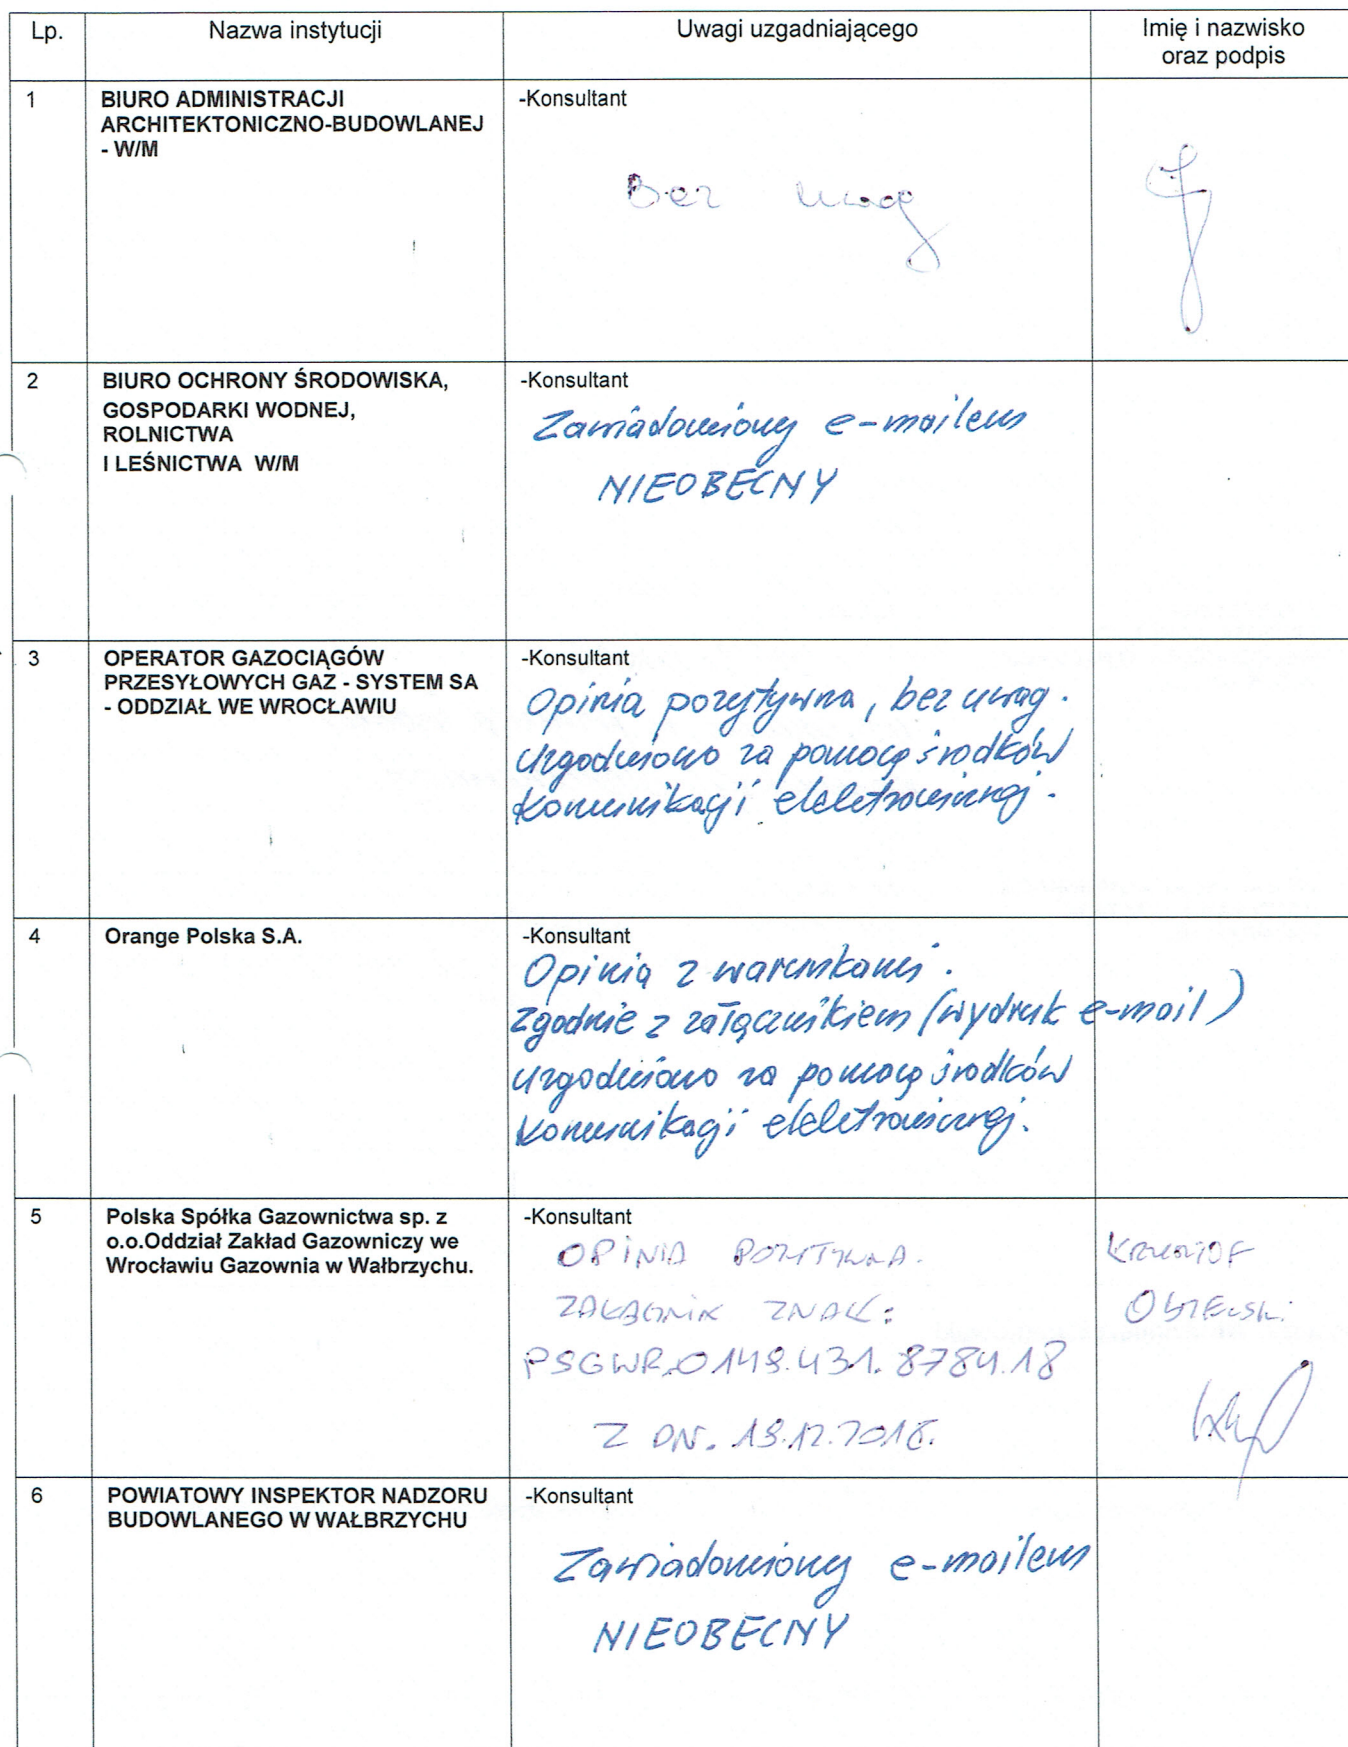 Lp.
Nazwa instytucji
Uwagi uzgadniającego
Imię i nazwisko
oraz podpis
1
BIURO ADMINISTRACJI
ARCHITEKTONICZNO-BUDOWLANEJ
- W/M
-Konsultant
Bez uwag
2
BIURO OCHRONY ŚRODOWISKA,
GOSPODARKI WODNEJ,
ROLNICTWA
I LEŚNICTWA W/M
-Konsultant
Zawiadomiony e-mailem
NIEOBECNY
3
OPERATOR GAZOCIĄGÓW
PRZESYŁOWYCH GAZ - SYSTEM SA
- ODDZIAŁ WE WROCŁAWIU
-Konsultant
Opinia pozytywna, bez uwag.
Uzgodniono za pomocą środków
komunikacji elektronicznej.
4
Orange Polska S.A.
-Konsultant
Opinia z warunkami.
Zgodnie z załącznikiem (wydruk e-mail)
Uzgodniono za pomocą środków
komunikacji elektronicznej.
5
Polska Spółka Gazownictwa sp. z
o.o.Oddział Zakład Gazowniczy we
Wrocławiu Gazownia w Wałbrzychu.
-Konsultant
OPINIA POZYTYWNA.
ZAŁĄCZNIK ZNAK:
PSGWR.0149.431.8784.18
Z DN. 19.12.2018.
KRZYSZTOF
6
POWIATOWY INSPEKTOR NADZORU
BUDOWLANEGO W WAŁBRZYCHU
-Konsultant
Zawiadomiony e-mailem
NIEOBECNY